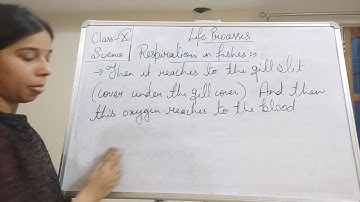 Class-X
Life Processes
Science
Respiration in fishes :-
→ Then it reaches to the gill slit
(cover under the gill cover) And then
this oxygen reaches to the blood